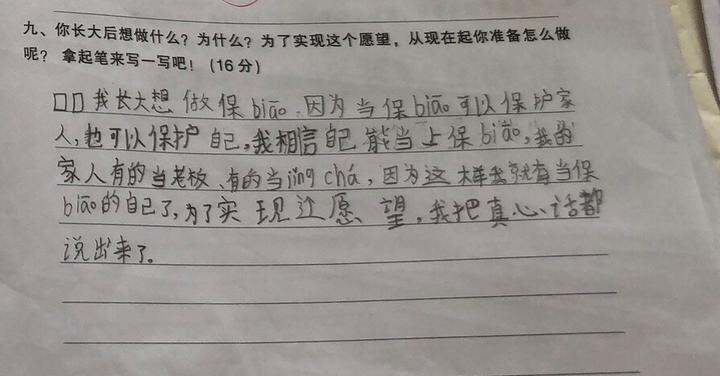 九、你长大后想做什么？为什么？为了实现这个愿望，从现在起你准备怎么做
呢？拿起笔来写一写吧！（16分）
□□我长大想做保biāo.因为当保biāo可以保护家
人,也可以保护自己,我相信自己能当上保biāo,我的
家人有的当老板、有的当jǐng chá,因为这样我就有当保
biāo的自己了,为了实现这愿望,我把真心话都
说出来了。